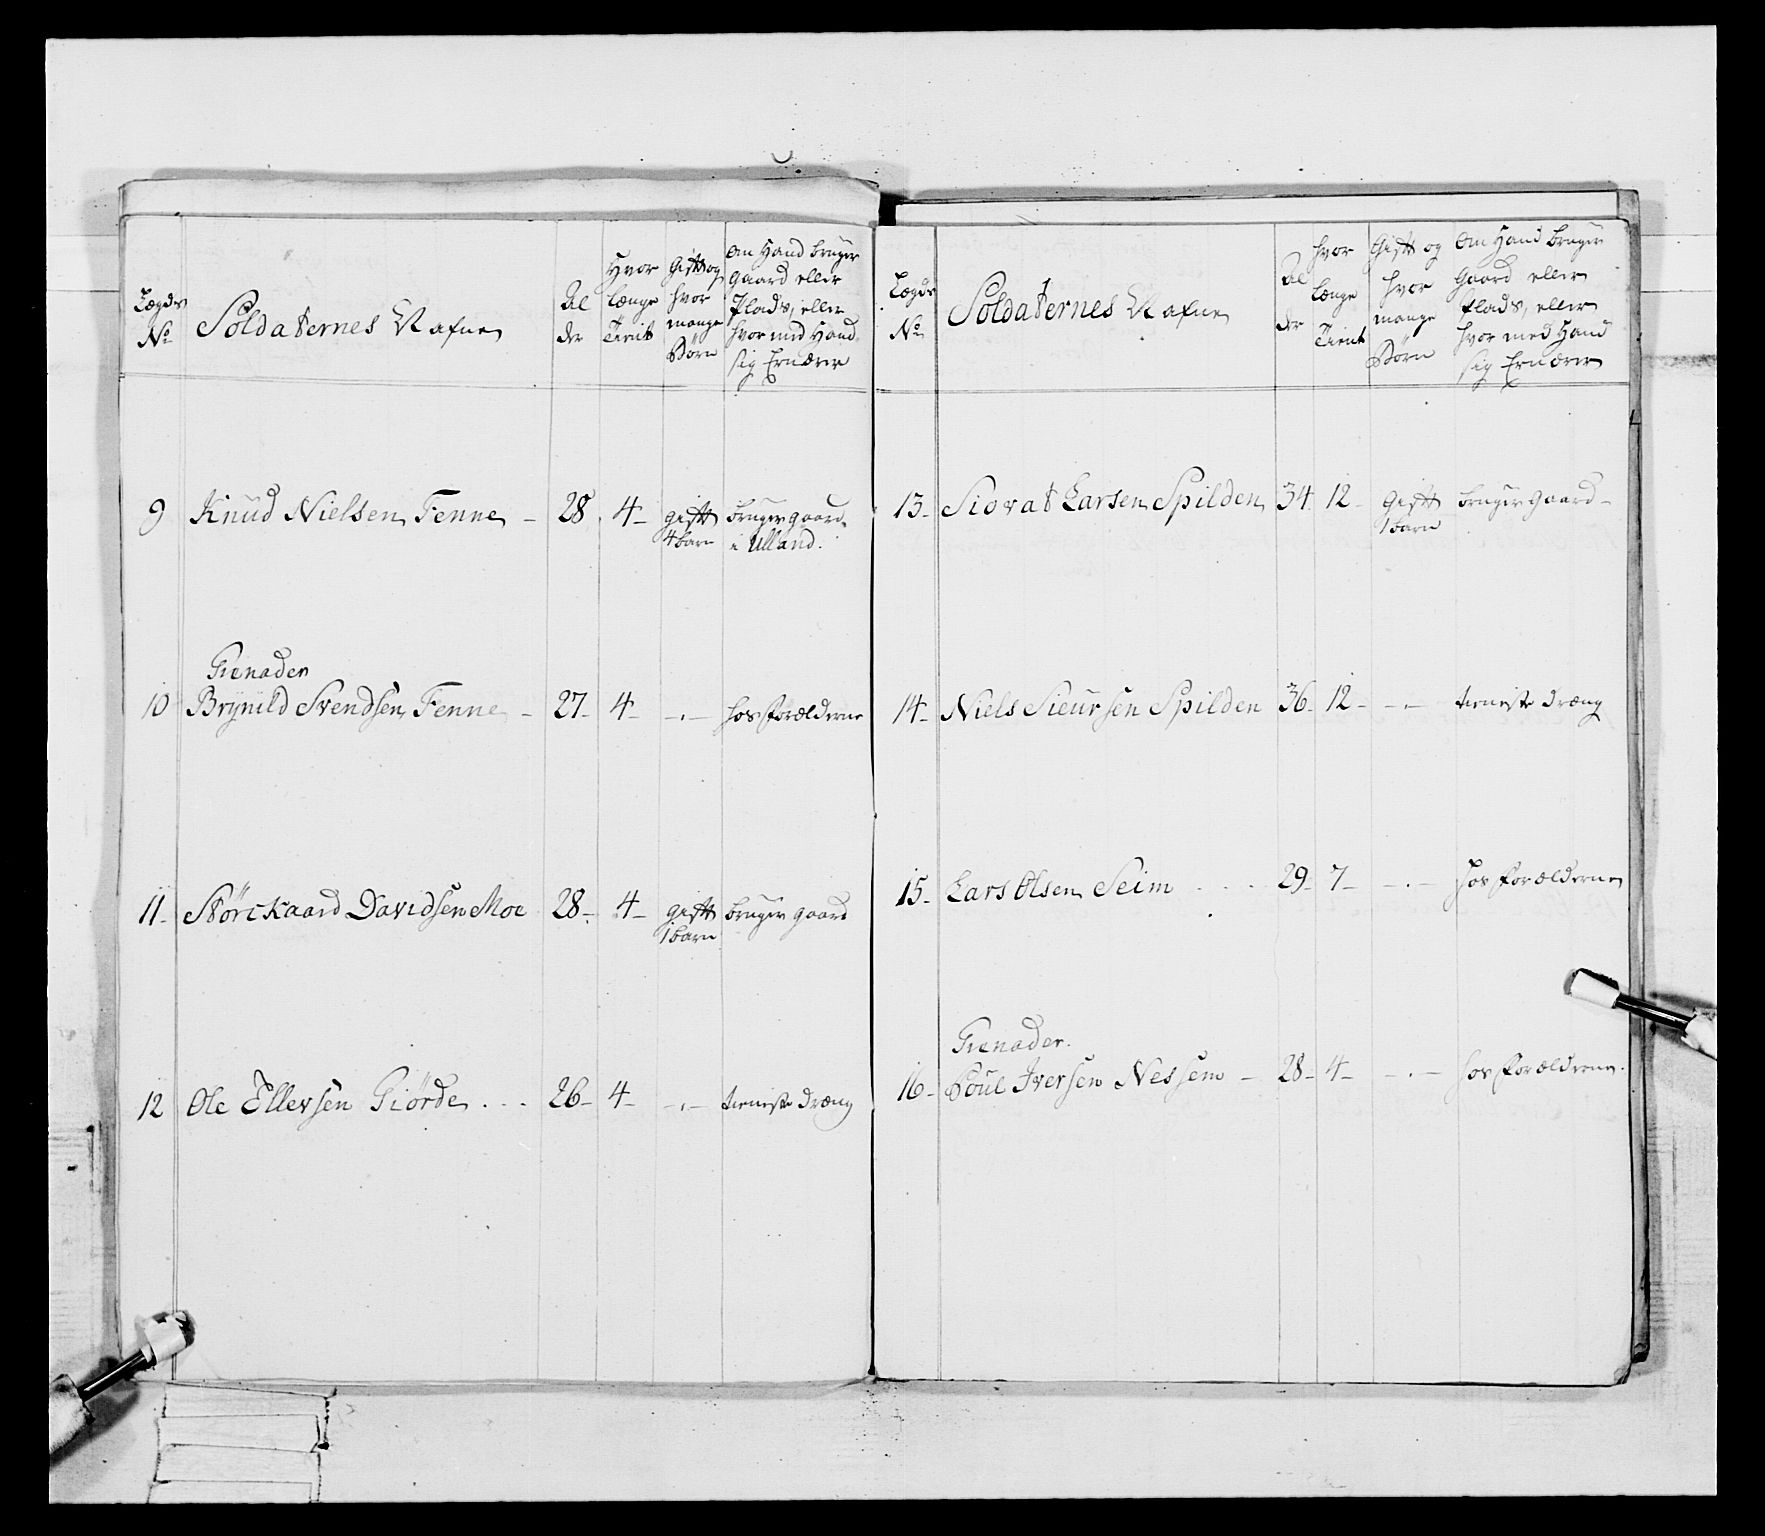 Lægds No
Soldaternes Nafne
Alder
Hvor længe Tient
Gift og hvor mange Børn
Om Hand bruger Gaard eller Plads, eller hvor med Hand sig Ernærer
9 Knud Nielsen Fenne – 28. 4– gift bruger gaard
4 barn i Ulland.
Grenader
10 Brynild Svendsen Fenne – 27– 4– –.– hos forælderne
11– Nörckaard Davidsen Moe 28– 4– gift bruger gaard
1 barn
12 Ole Ellevsen Giörde . . . 26– 4– –.– tieneste dræng
Lægds No
Soldaternes Nafne
Alder
hvor længe Tient
Gift og hvor mange Børn
Om Hand bruger Gaard eller Plads, eller hvor med Hand sig Ernærer
13– Siovat Larsen Spilden 34 12– gift bruger gaard –
1 barn
14– Niels Sieursen Spilden 36– 12– –.– tieneste dræng
15– Lars Olsen Seim . . . 29– 7– –.– hos forælderne
Grenader.
16– Poul Iversen Nessem – 28– 4– –.– hos forælderne.